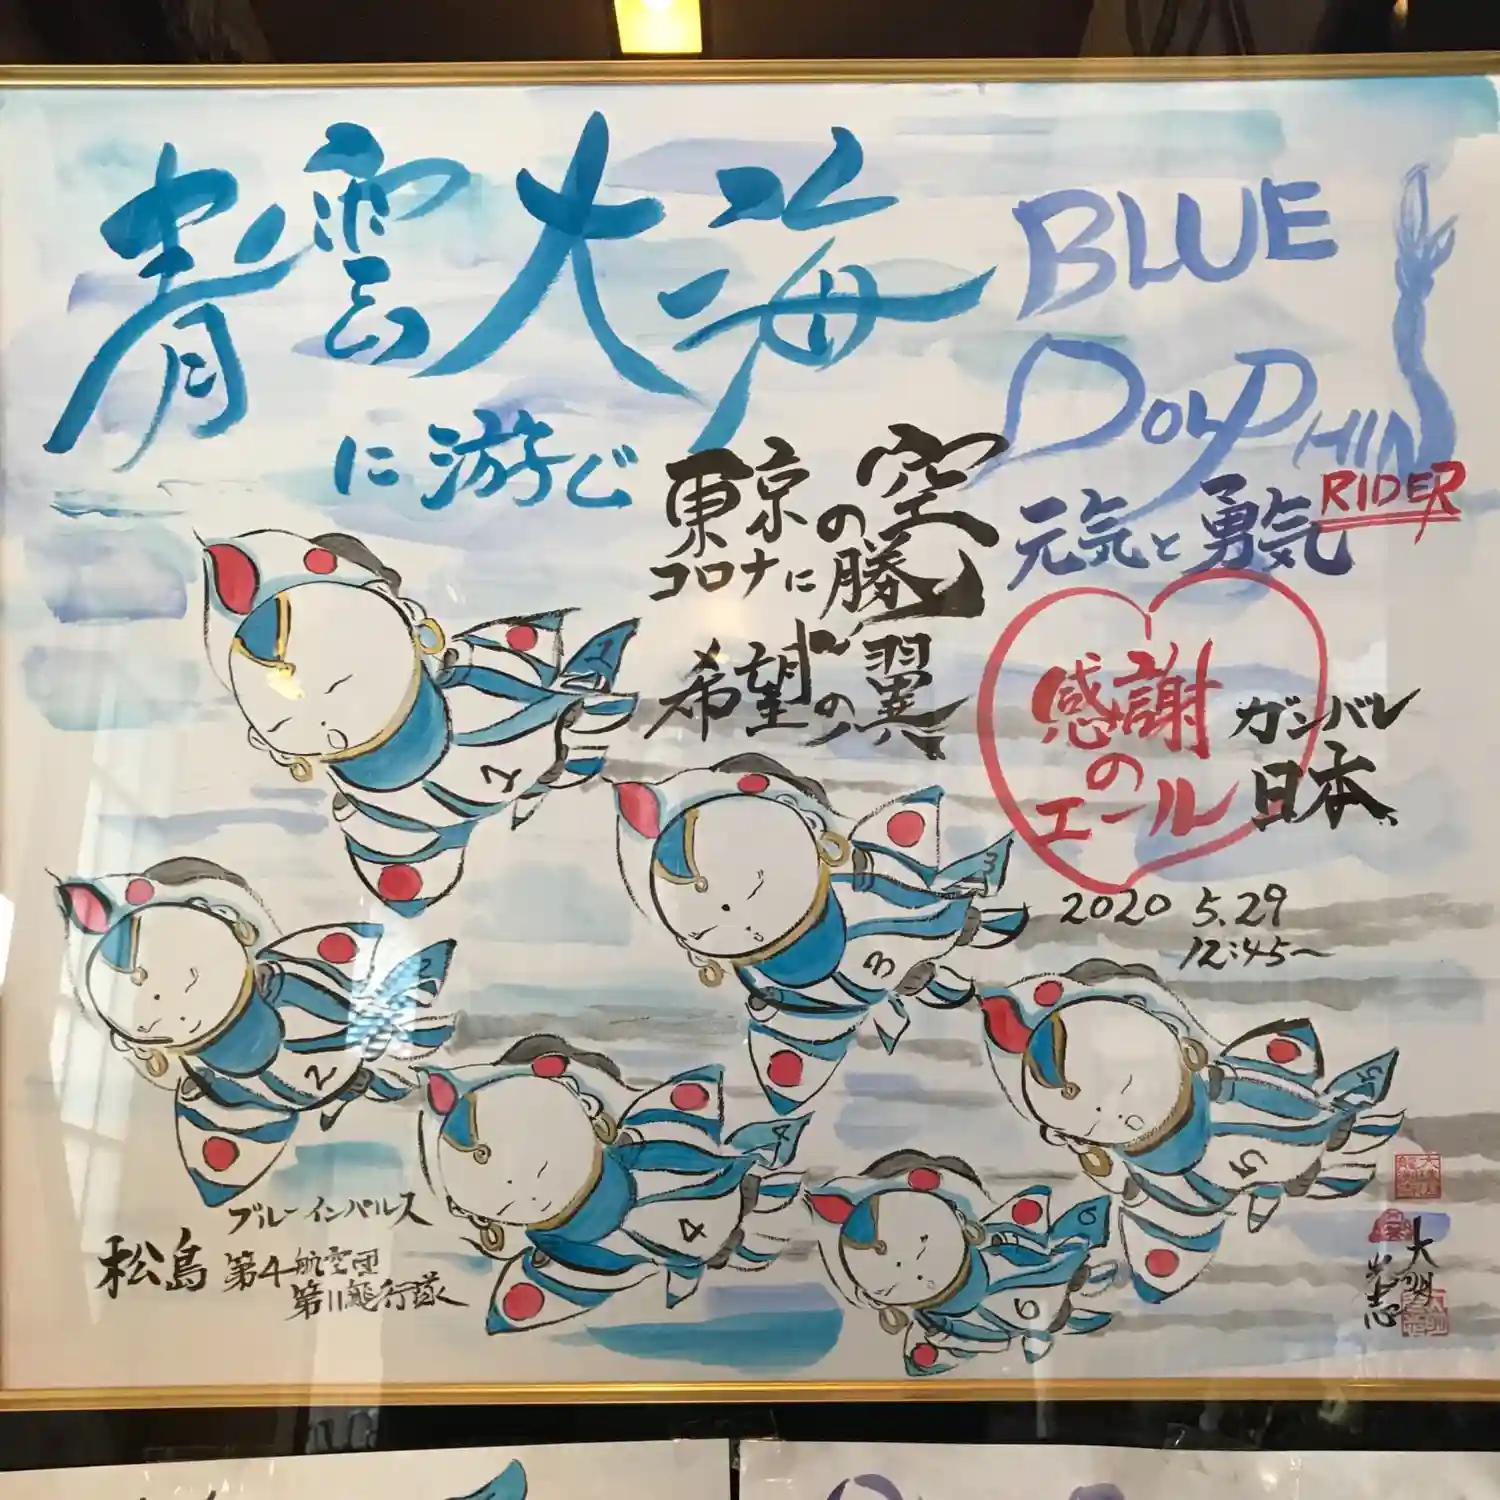 青雲大海
に游ぐ
BLUE
DOLPHIN
RIDER
東京の空
コロナに勝
希望の翼
元気と勇気
感謝
の
エール
ガンバレ
日本
2020 5.29
12:45~
1
1
3
3
2
2
4
4
5
5
6
6
ブルーインパルス
松島 第4航空団
第11飛行隊